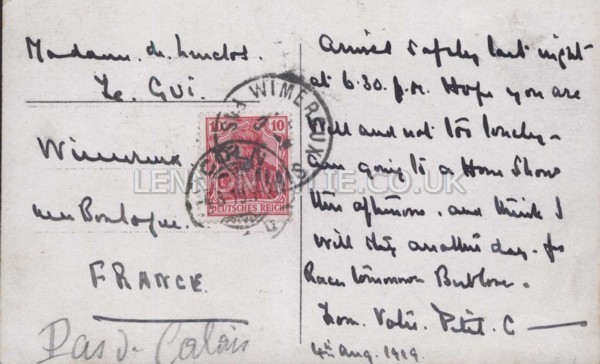 Madame de
Le Gui.
Wimereux
near Boulogne.
FRANCE
Pas de Calais
WIMEREUX
10 10
DEUTSCHES REICH
LENN WHITE.CO.UK
Arrived safely last night
at 6.30. p.m. Hope you are
well and not too lonely -
am going to a Horse Show
this afternoon. and think I
will stay another day - for
Races tomorrow
from
4th Aug. 1919.